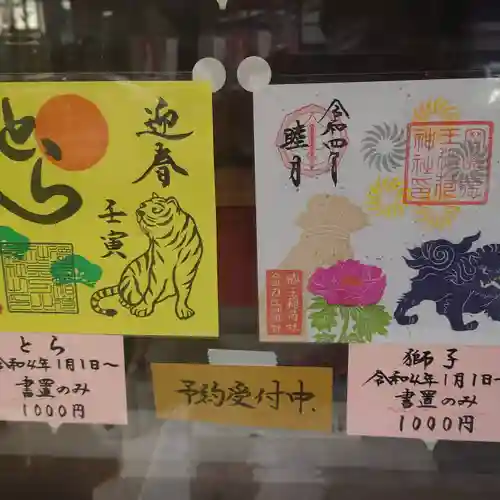 とら
迎春
壬寅
令和四年
睦月
とら
令和4年1月1日～
書置のみ
1000円
予約受付中
獅子
令和4年1月1日~
書置のみ
1000円